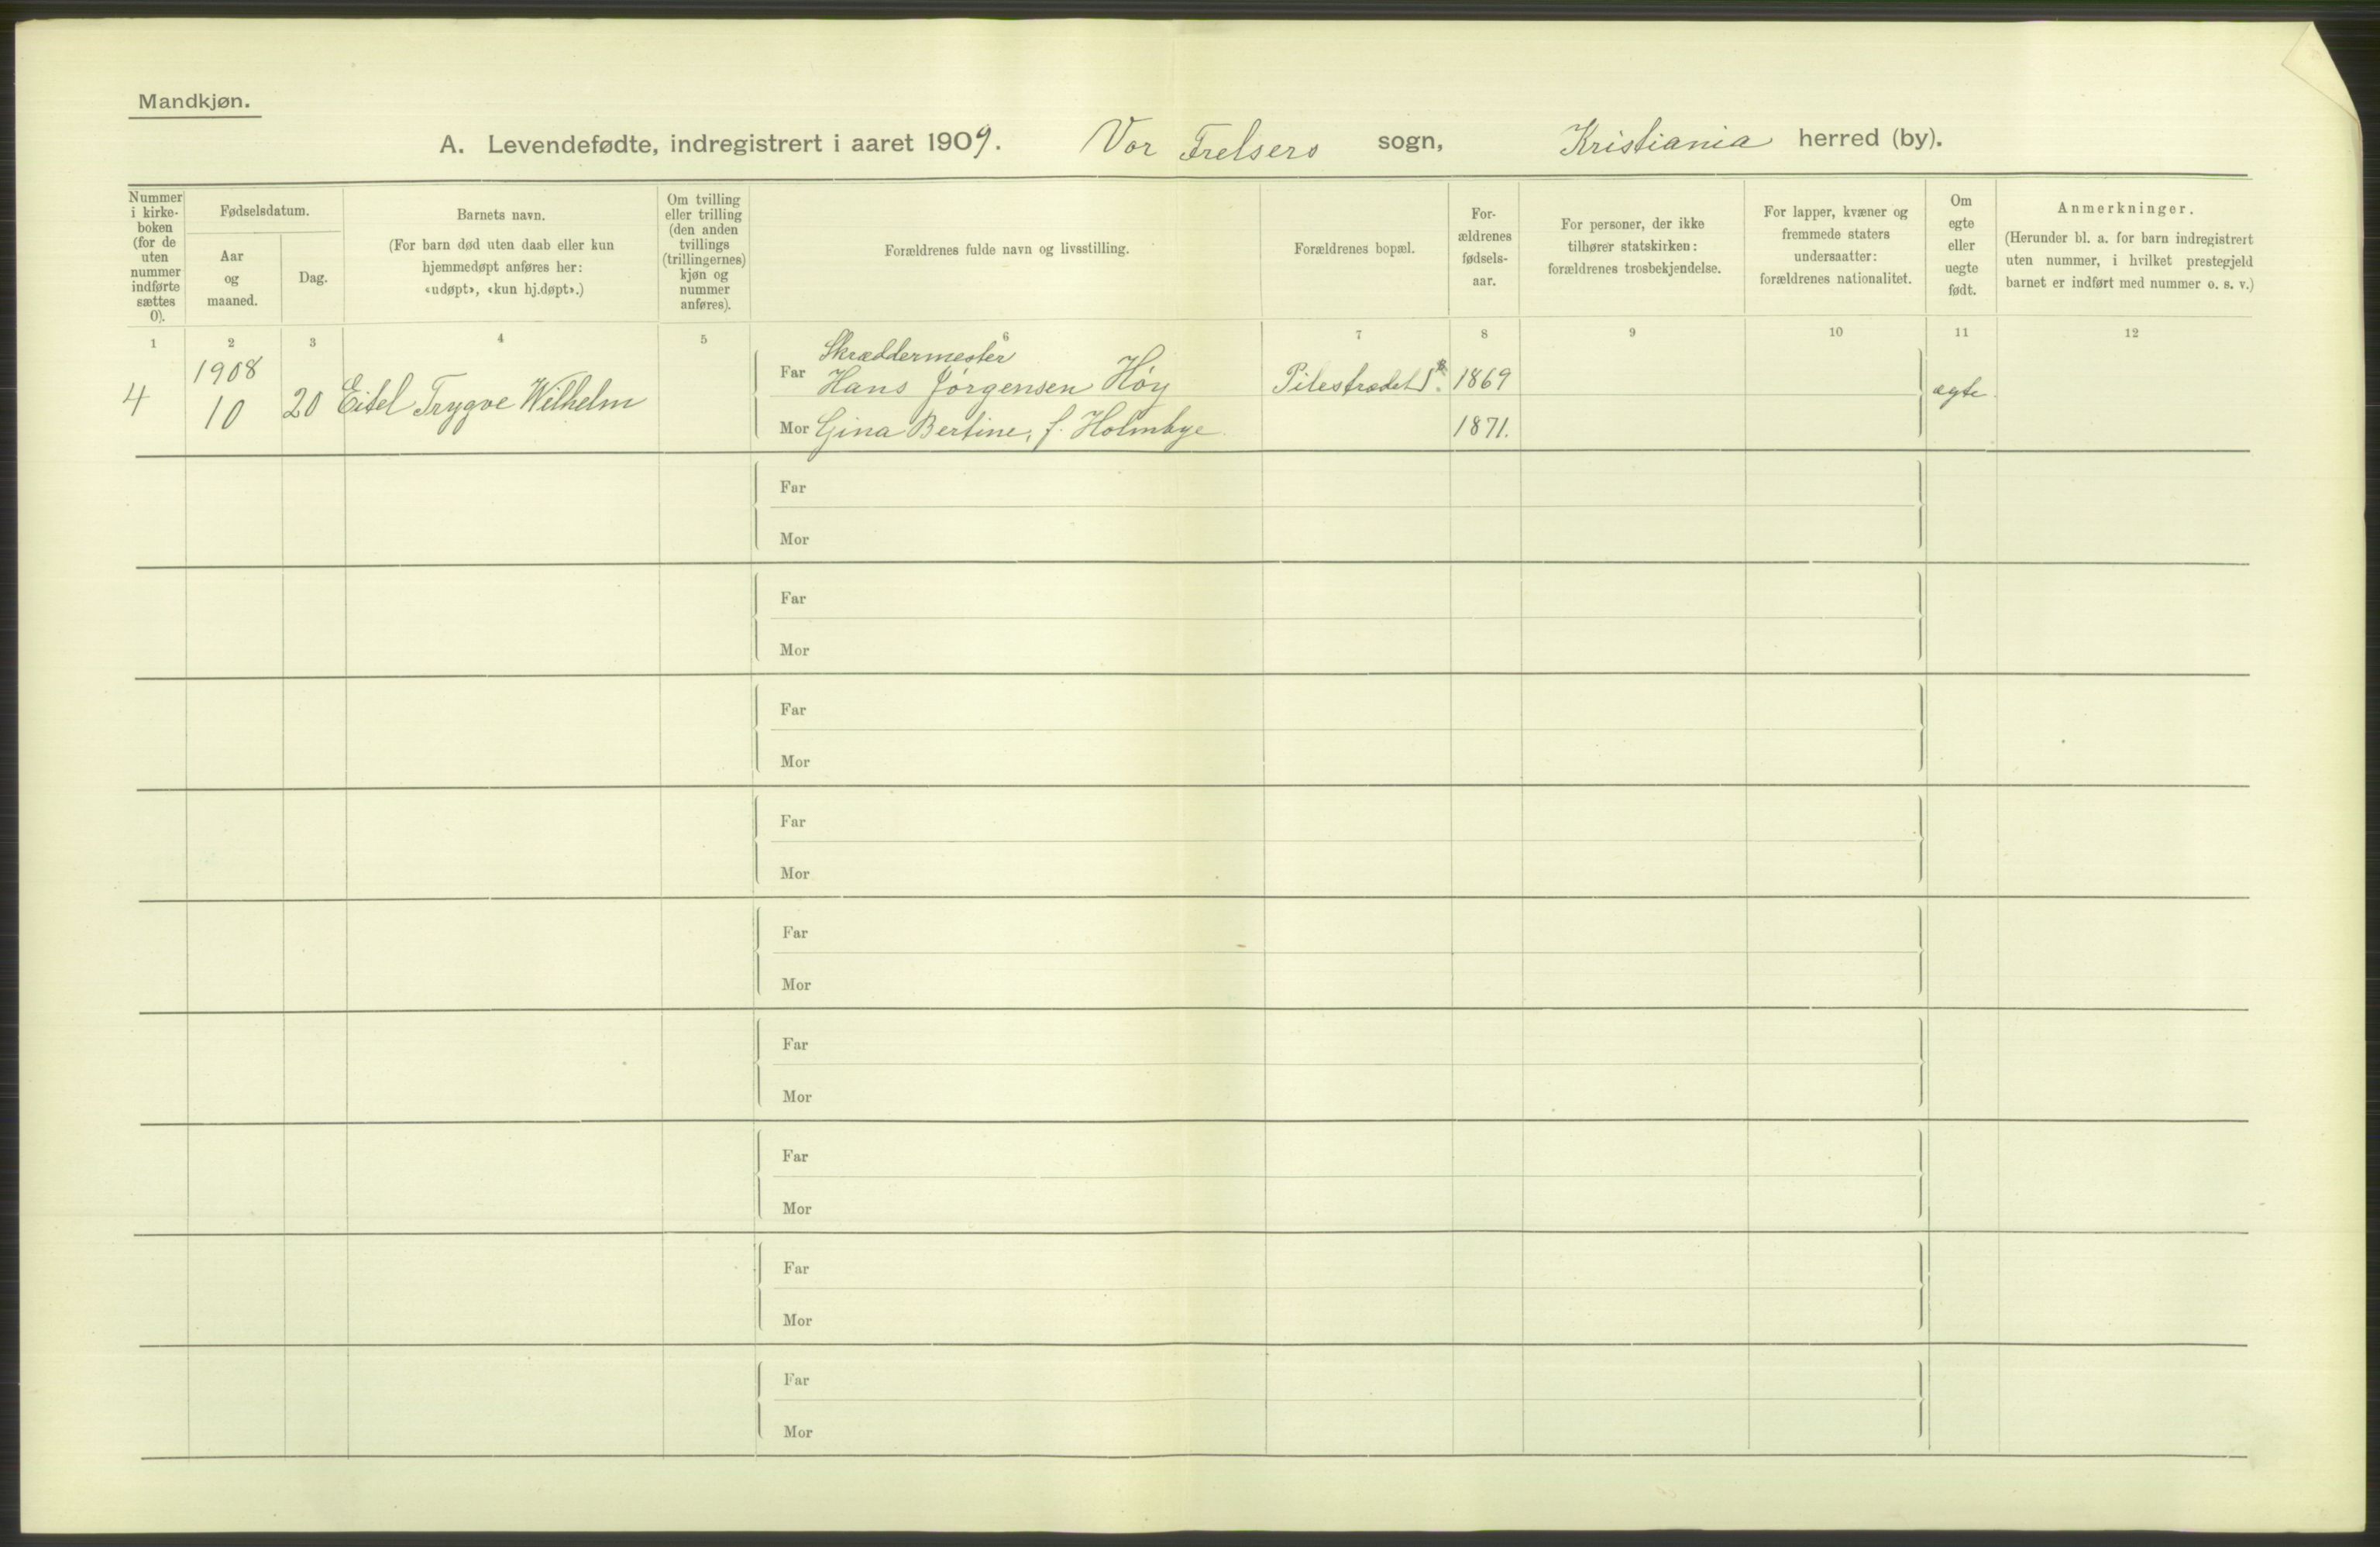 Mandkjøn.
A. Levendefødte, indregistrert i aaret 1909. Vor Frelsers sogn, Kristiania herred (by).
Nummer
i kirke-
boken
(for de
uten
nummer
indførte
sættes
0).
Fødselsdatum.
Aar
og
maaned.
Dag.
Barnets navn.
(For barn død uten daab eller kun
hjemmedøpt anføres her:
«udøpt», «kun hj.døpt».)
Om tvilling
eller trilling
(den anden
tvillings
(trillingernes)
kjøn og
nummer
anføres).
Forældrenes fulde navn og livsstilling.
Forældrenes bopæl.
For-
ældrenes
fødsels-
aar.
For personer, der ikke
tilhører statskirken:
forældrenes trosbekjendelse.
For lapper, kvæner og
fremmede staters
undersaatter:
forældrenes nationalitet.
Om
egte
eller
uegte
født.
Anmerkninger.
(Herunder bl. a. for barn indregistrert
uten nummer, i hvilket prestegjeld
barnet er indført med nummer o. s. v.)
1 2 3 4 5 6 7 8 9 10 11 12
4
1908
10
20
Eitel Trygve Wilhelm
Skræddermester
Far Hans Jørgensen Höy
Pilestrædet
1869
ægte
Mor Gina Bertine, f. Holmbye.
1871.
Far
Mor
Far
Mor
Far
Mor
Far
Mor
Far
Mor
Far
Mor
Far
Mor
Far
Mor
Far
Mor